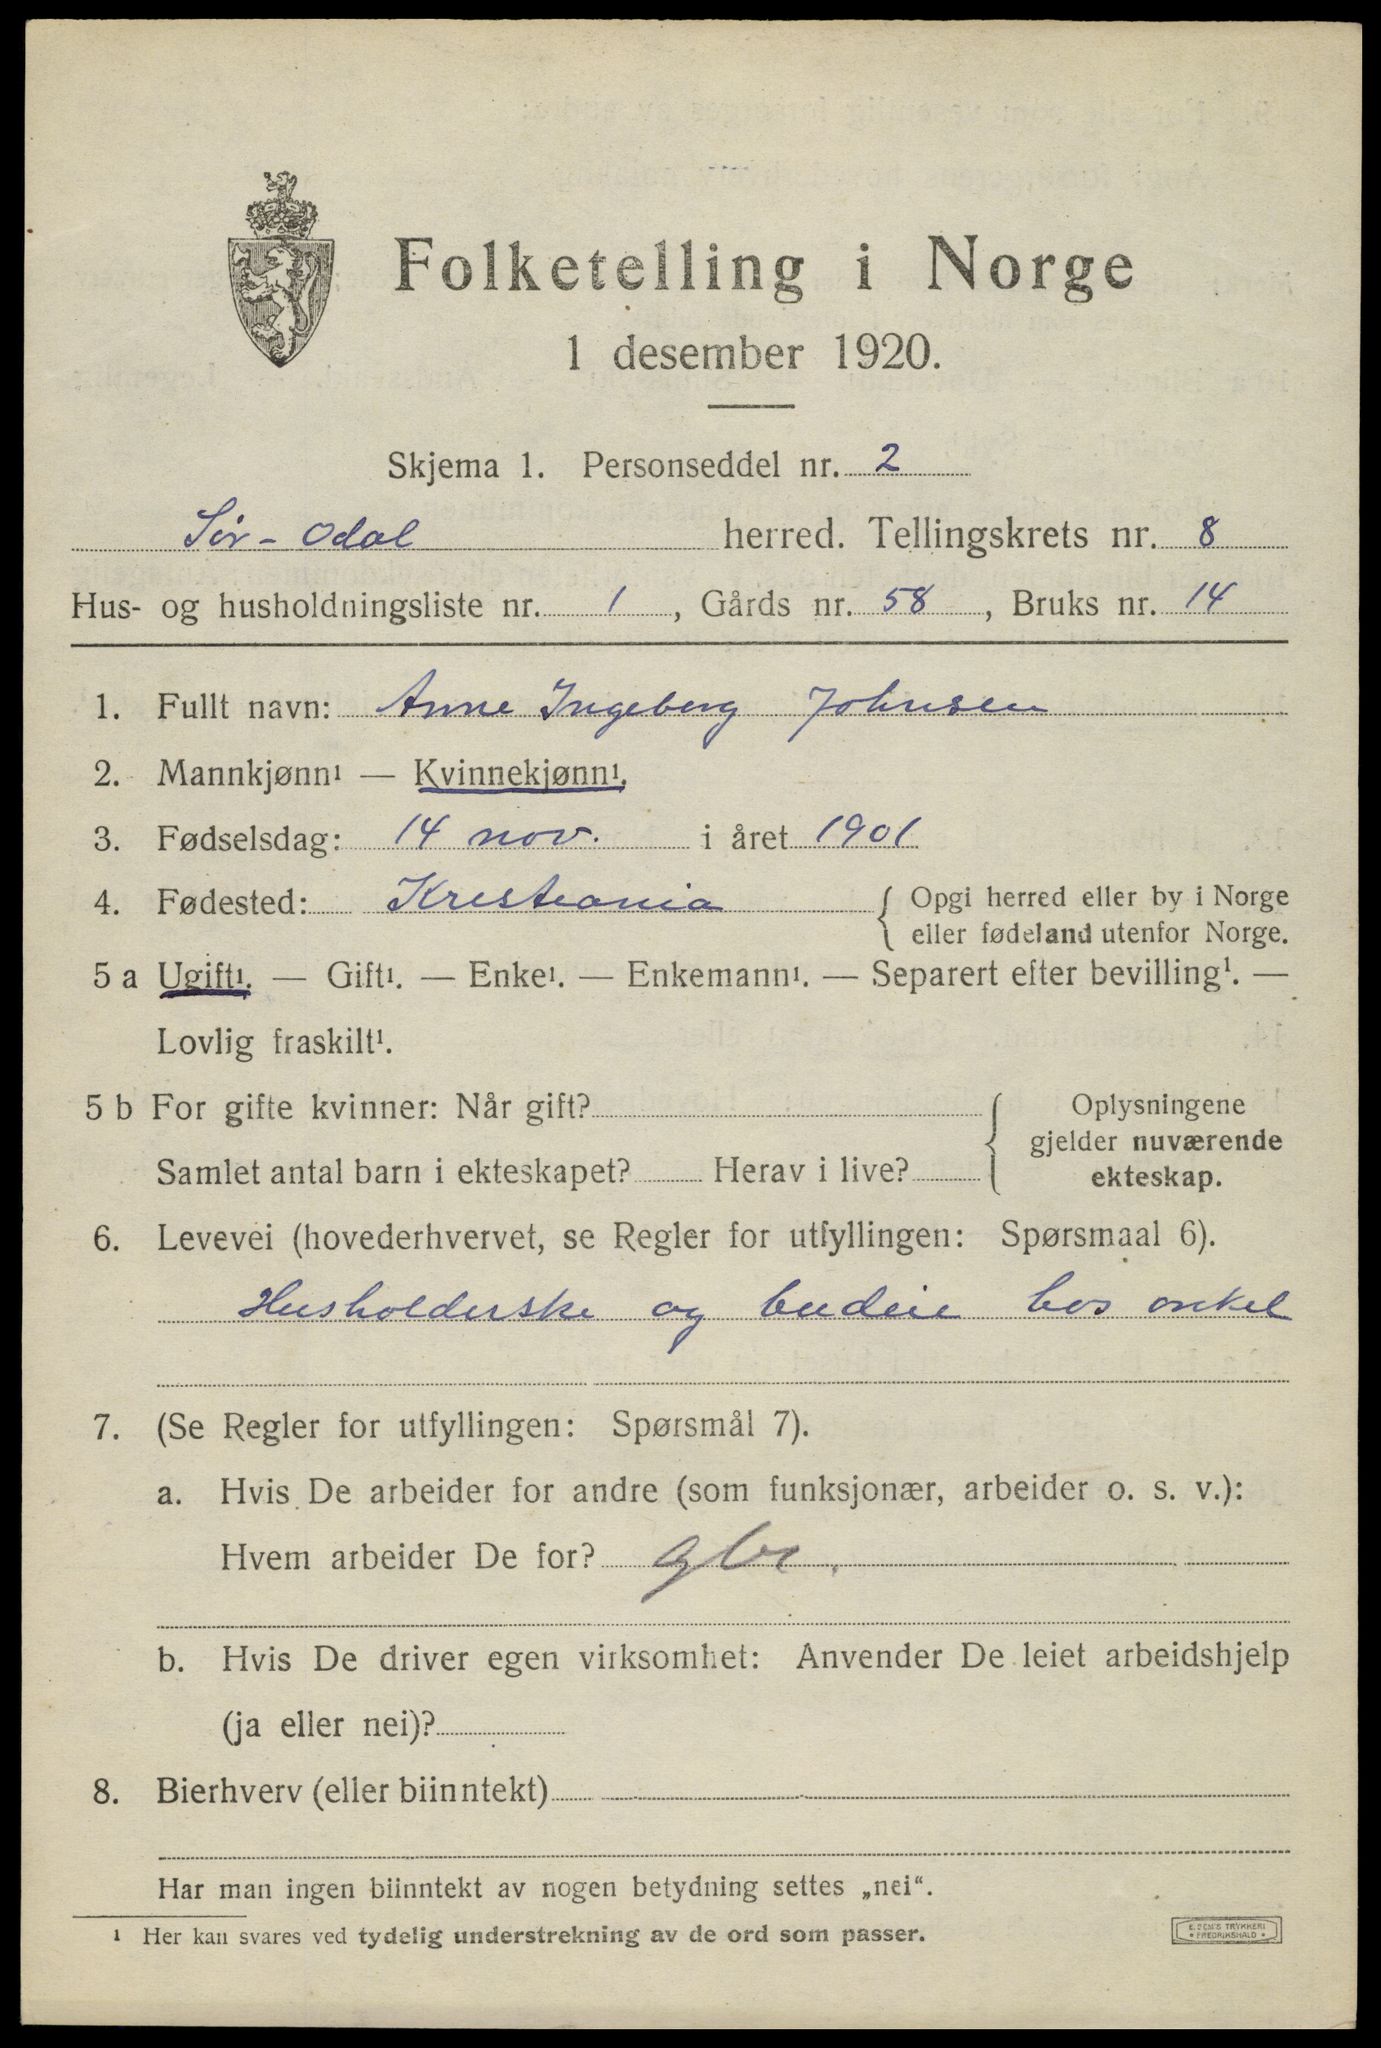 Folketelling i Norge
1 desember 1920.
Skjema 1. Personseddel nr. 2
Sör-Odal herred. Tellingskrets nr. 8
Hus- og husholdningsliste nr. 1, Gårds nr. 58, Bruks nr. 14
1. Fullt navn: Anne Ingeborg Johnsen
2. Mannkjønn¹ — Kvinnekjønn¹.
3. Fødselsdag: 14 nov. i året 1901
4. Fødested: Kristiania { Opgi herred eller by i Norge
eller fødeland utenfor Norge.
5 a Ugift¹. — Gift¹. — Enke¹. — Enkemann¹. — Separert efter bevilling¹. —
Lovlig fraskilt¹.
5 b For gifte kvinner: Når gift? { Oplysningene
gjelder nuværende
Samlet antal barn i ekteskapet? Herav i live? ekteskap.
6. Levevei (hovederhvervet, se Regler for utfyllingen: Spørsmaal 6).
Husholderske og budeie hos onkel
7. (Se Regler for utfyllingen: Spørsmål 7).
a. Hvis De arbeider for andre (som funksjonær, arbeider o. s. v.):
Hvem arbeider De for? gbr.
b. Hvis De driver egen virksomhet: Anvender De leiet arbeidshjelp
(ja eller nei)?
8. Bierhverv (eller biinntekt)
Har man ingen biinntekt av nogen betydning settes „nei“.
¹ Her kan svares ved tydelig understrekning av de ord som passer.
E. SEM'S TRYKKERI
• FREDRIKSHALD •